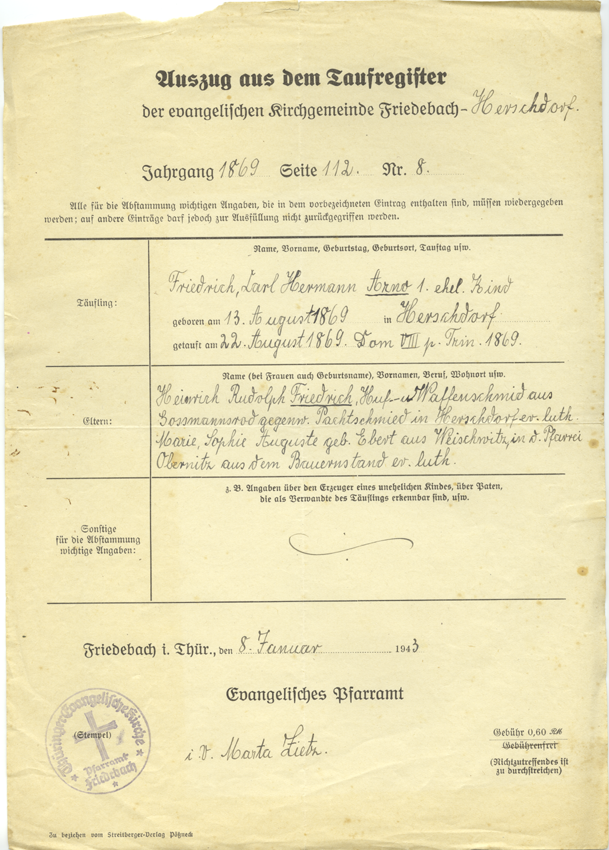 Auszug aus dem Taufregister
der evangelischen Kirchgemeinde Friedebach-Herschdorf.
Jahrgang 1869 Seite 112. Nr. 8.
Alle für die Abstammung wichtigen Angaben, die in dem vorbezeichneten Eintrag enthalten sind, müssen wiedergegeben
werden; auf andere Einträge darf jedoch zur Ausfüllung nicht zurückgegriffen werden.
Name, Vorname, Geburtstag, Geburtsort, Tauftag usw.
Täufling:
Friedrich, Carl Hermann Arno 1. ehel. Kind
geboren am 13. August 1869 in Herschdorf
getauft am 22. August 1869. Dom VIII p. Trin. 1869.
Name (bei Frauen auch Geburtsname), Vornamen, Beruf, Wohnort usw.
Eltern:
Heinrich Rudolph Friedrich, Huf- u Waffenschmid aus
Gossmannsrod gegenw. Pachtschmied in Herschdorf ev. luth.
Marie, Sophie Auguste geb. Ebert aus Weischwitz, in d. Pfarrei
Obernitz aus dem Bauernstand ev. luth.
z. B. Angaben über den Erzeuger eines unehelichen Kindes, über Paten,
die als Verwandte des Täuflings erkennbar sind, usw.
Sonstige
für die Abstammung
wichtige Angaben:
Friedebach i. Thür., den 8. Januar 1943
Evangelisches Pfarramt
Thüringer Evangelische Kirche
(Stempel)
Pfarramt
Friedebach
i. V. Marta Zietz.
Gebühr 0,60 RM
Gebührenfrei
(Nichtzutreffendes ist
zu durchstreichen)
Zu beziehen vom Streitberger-Verlag Pößneck